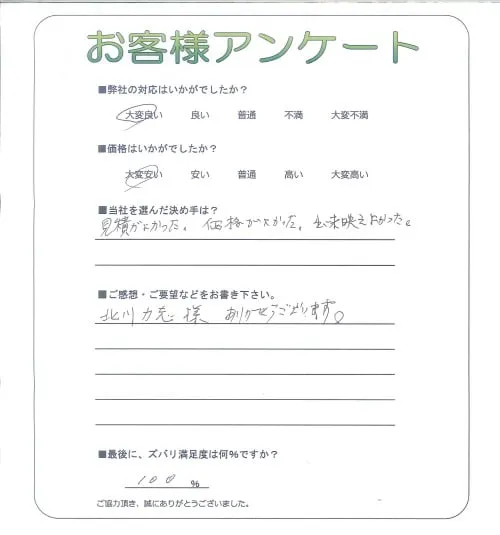 お客様アンケート
■弊社の対応はいかがでしたか？
大変良い 良い 普通 不満 大変不満
■価格はいかがでしたか？
大変安い 安い 普通 高い 大変高い
■当社を選んだ決め手は？
見積がよかった。価格がよかった。出来映えよかった。
■ご感想・ご要望などをお書き下さい。
北川 様 ありがとうございます。
■最後に、ズバリ満足度は何%ですか？
100 %
ご協力頂き、誠にありがとうございました。